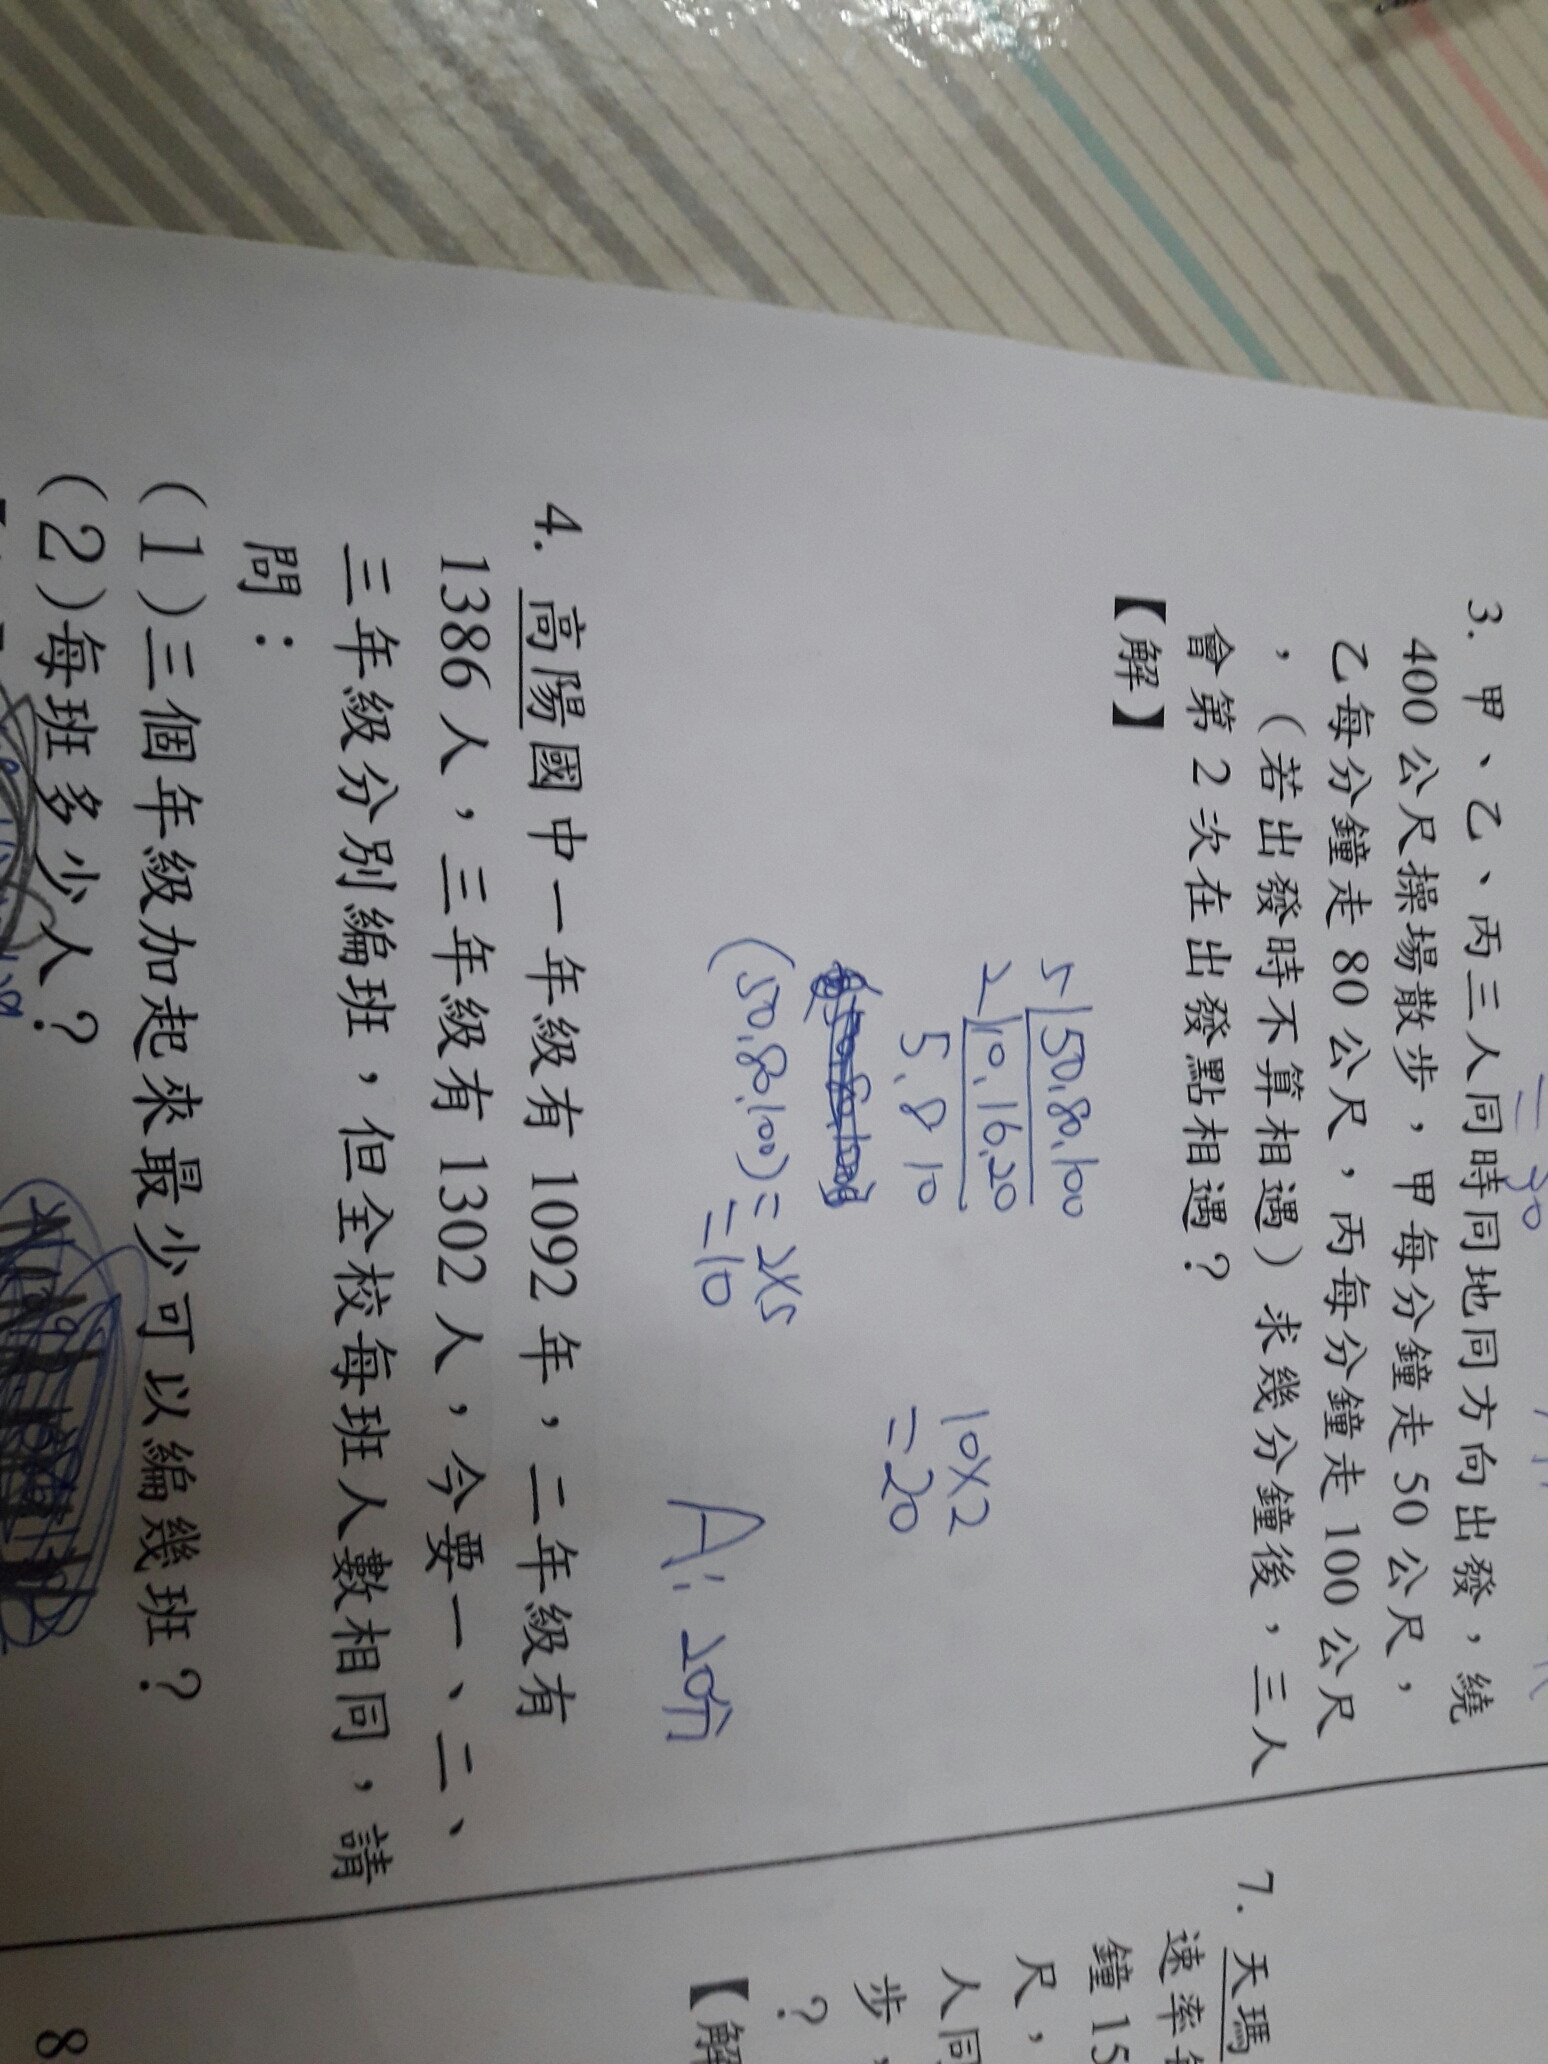 =30
3. 甲、乙、丙三人同時同地同方向出發，繞
400公尺操場散步，甲每分鐘走50公尺，
乙每分鐘走80公尺，丙每分鐘走100公尺
，（若出發時不算相遇）求幾分鐘後，三人
會第2次在出發點相遇？
【解】
5|50,80,100
2|10,16,20
5,8 10
(50,80,100)=2×5
=10
10×2
=20
A: 20分
4. 高陽國中一年級有1092年，二年級有
1386人，三年級有1302人，今要一、二、
三年級分別編班，但全校每班人數相同，請
問：
(1)三個年級加起來最少可以編幾班？
(2)每班多少人？
7. 天瑪
速率每
鐘15
尺，
人同
步，
？
【解
8